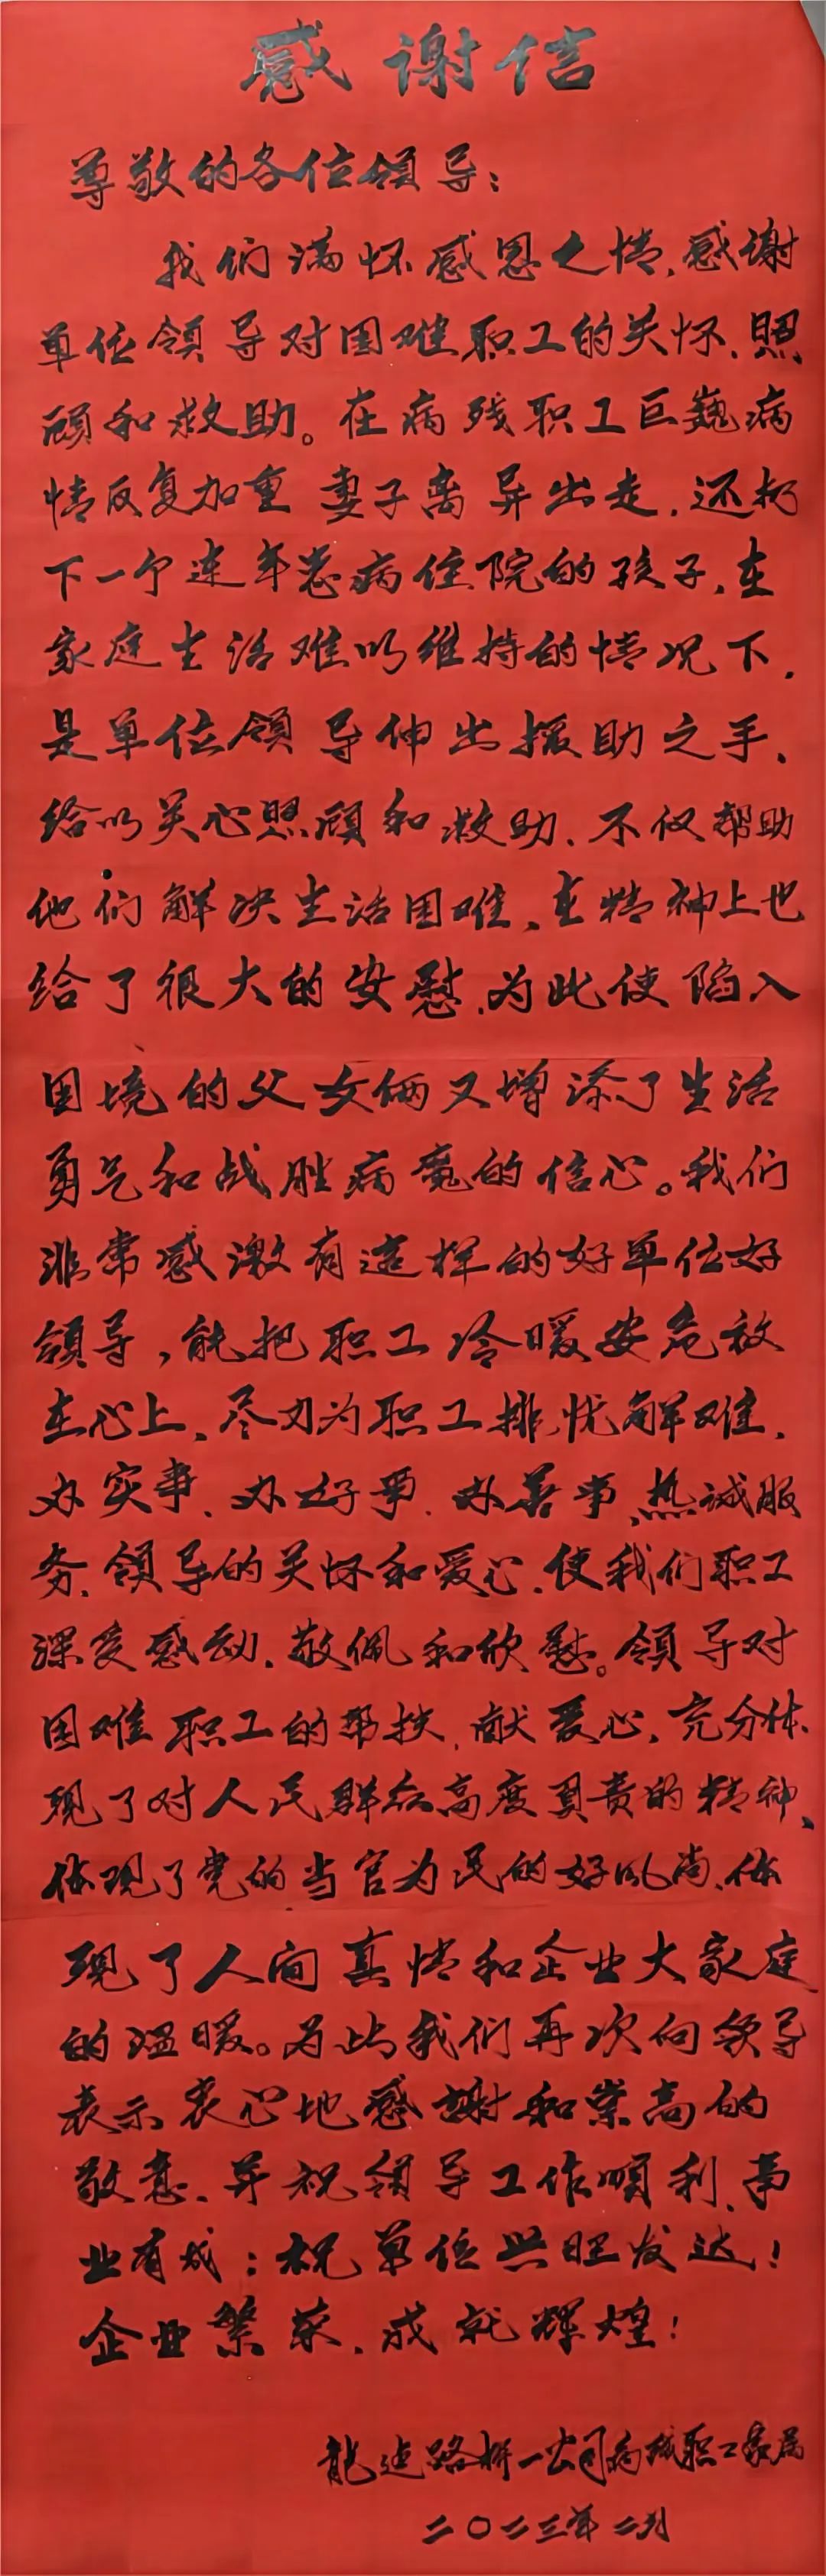 感谢信
尊敬的各位领导：
我们满怀感恩之情，感谢
单位领导对困难职工的关怀、照
顾和救助。在病残职工巨巍病
情反复加重 妻子离异出走，还扔
下一个连年患病住院的孩子，在
家庭生活难以维持的情况下，
是单位领导伸出援助之手，
给以关心照顾和救助、不仅帮助
他们解决生活困难，在精神上也
给了很大的安慰，为此使陷入
困境的父女俩又增添了生活
勇气和战胜病魔的信心。我们
非常感激有这样的好单位好
领导，能把职工冷暖安危放
在心上、尽力为职工排忧解难，
办实事、办好事、办善事、热诚服
务、领导的关怀和爱心，使我们职工
深受感动、敬佩和欣慰。领导对
困难职工的帮扶、献爱心，充分体
现了对人民群众高度负责的精神、
体现了党的当官为民的好风尚、体
现了人间真情和企业大家庭
的温暖。为此我们再次向领导
表示衷心地感謝和崇高的
敬意、并祝领导工作顺利、事
业有成；祝单位兴旺发达！
企业繁荣、成就辉煌！
龍建路桥一公司病残职工家属
二〇二三年二月